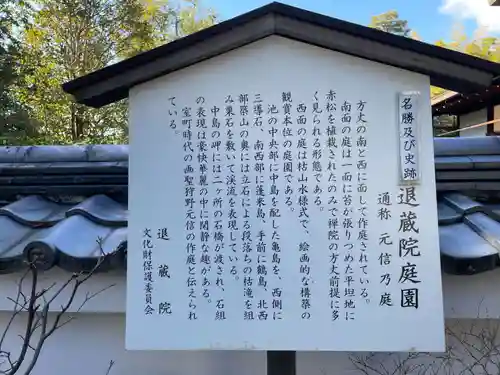 名勝及び史跡
退蔵院庭園
通称 元信の庭
方丈の南と西に面して作庭されている。
南面の庭は一面に苔が張りつめた平坦地に
赤松を植栽されたのみで禅院の方丈前提に多
く見られる形態である。
西面の庭は枯山水様式で、絵画的な構築の
観賞本位の庭園である。
池の中央部に中島を配した亀島を、西側に
三導石、南西部に蓬莱島、手前に鶴島、北西
部築山の奥には立石による段落ちの枯滝を組
み栗石を敷いて渓流を表現している。
中島の岬には石橋が架けられており、石組
の表現は豪快華麗の中に閑静な趣がある。
室町時代の画聖狩野元信の作庭と伝えられ
ている。
退蔵院
文化財保護委員会